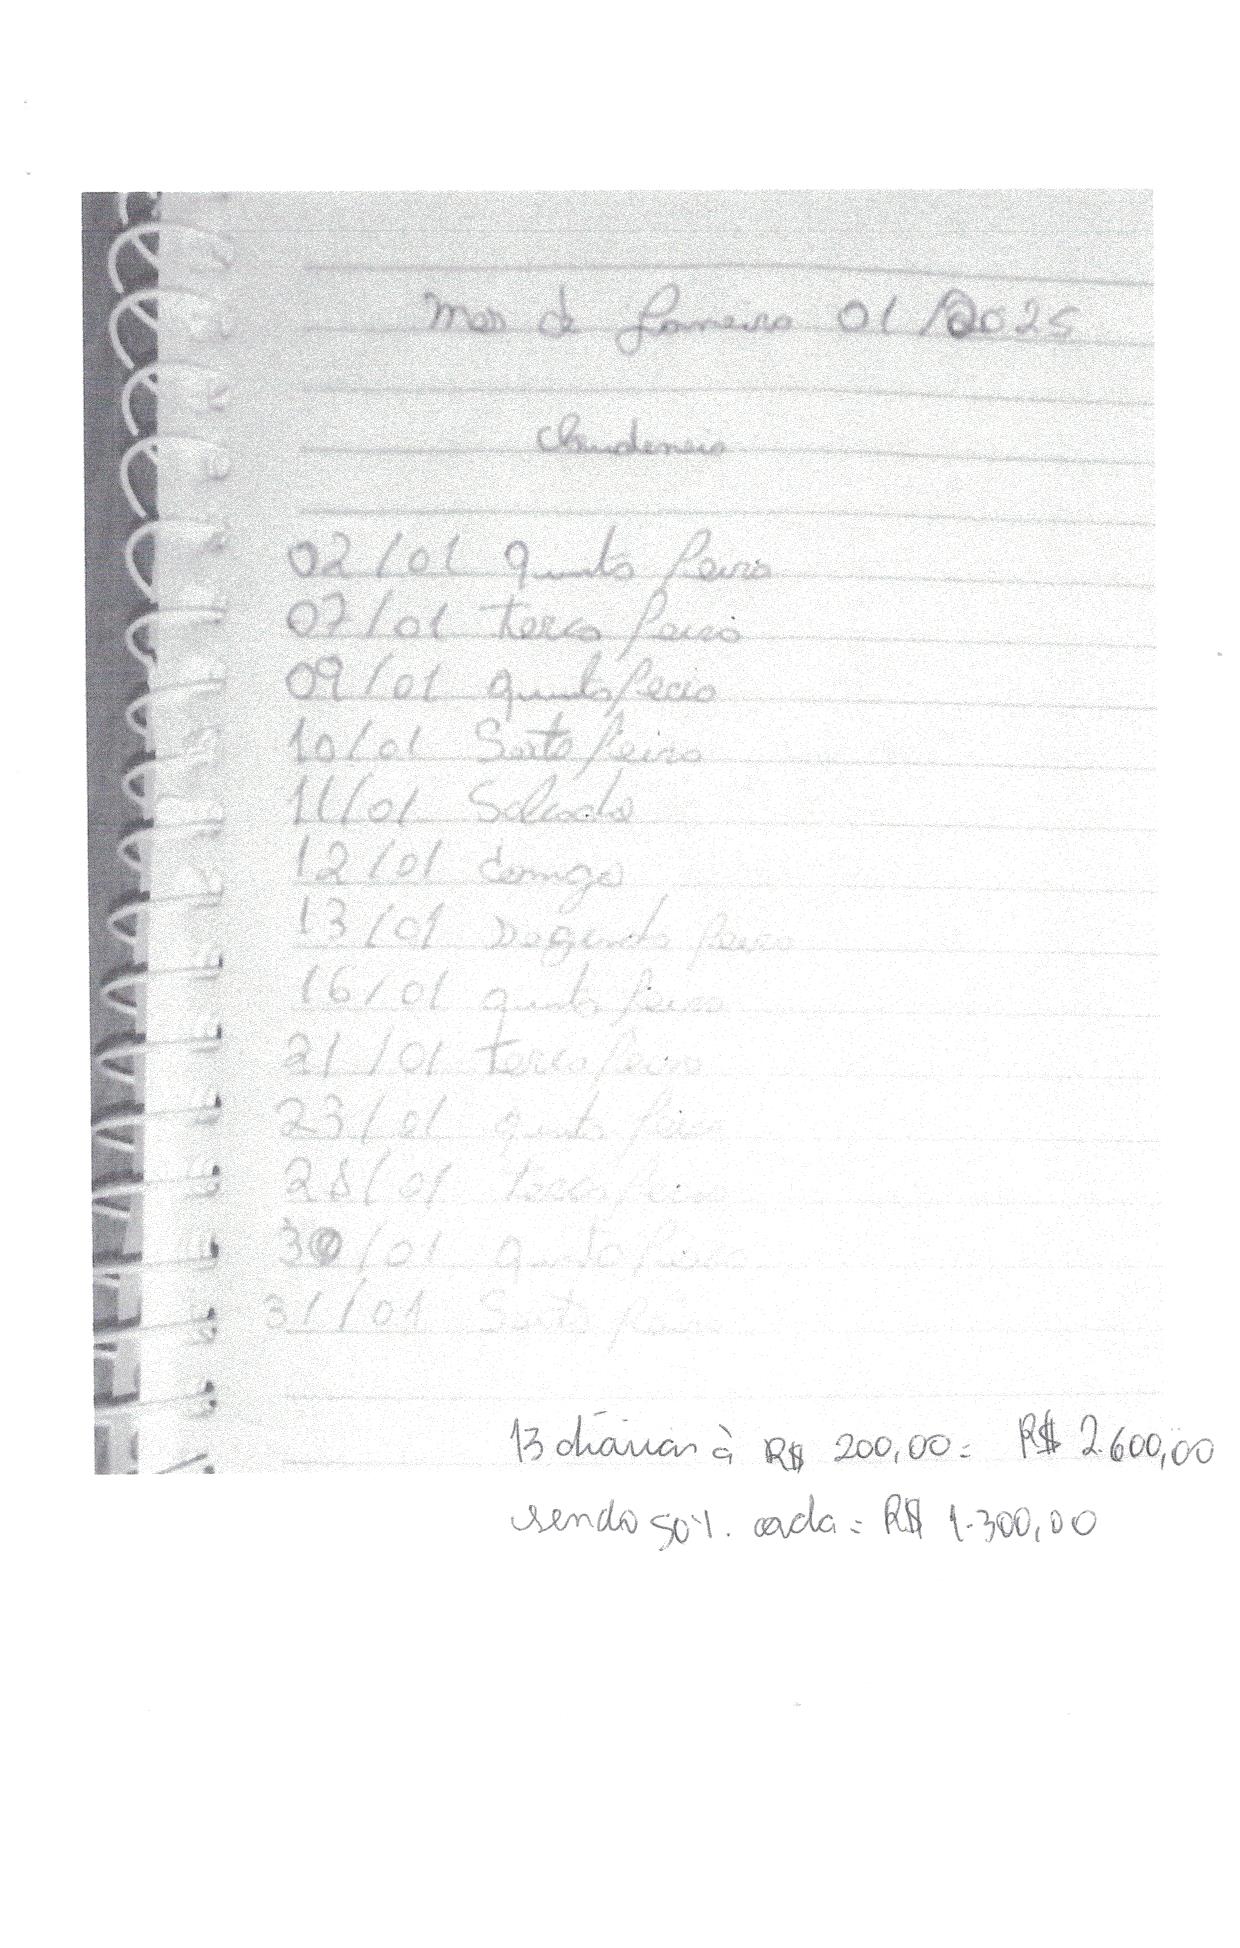 mes de Janeiro 01/2025
Claudeneis
02/01 quinta feira
07/01 terca feira
09/01 quinta feira
10/01 Sexta feira
11/01 Sabado
12/01 domigo
13/01 Segunda feira
16/01 quinta feira
21/01 terca feira
23/01 quinta feira
28/01 terca feira
30/01 quinta feira
31/01 Sexta feira
13 diárias à R$ 200,00 = R$ 2.600,00
sendo 50%. cada = R$ 1.300,00